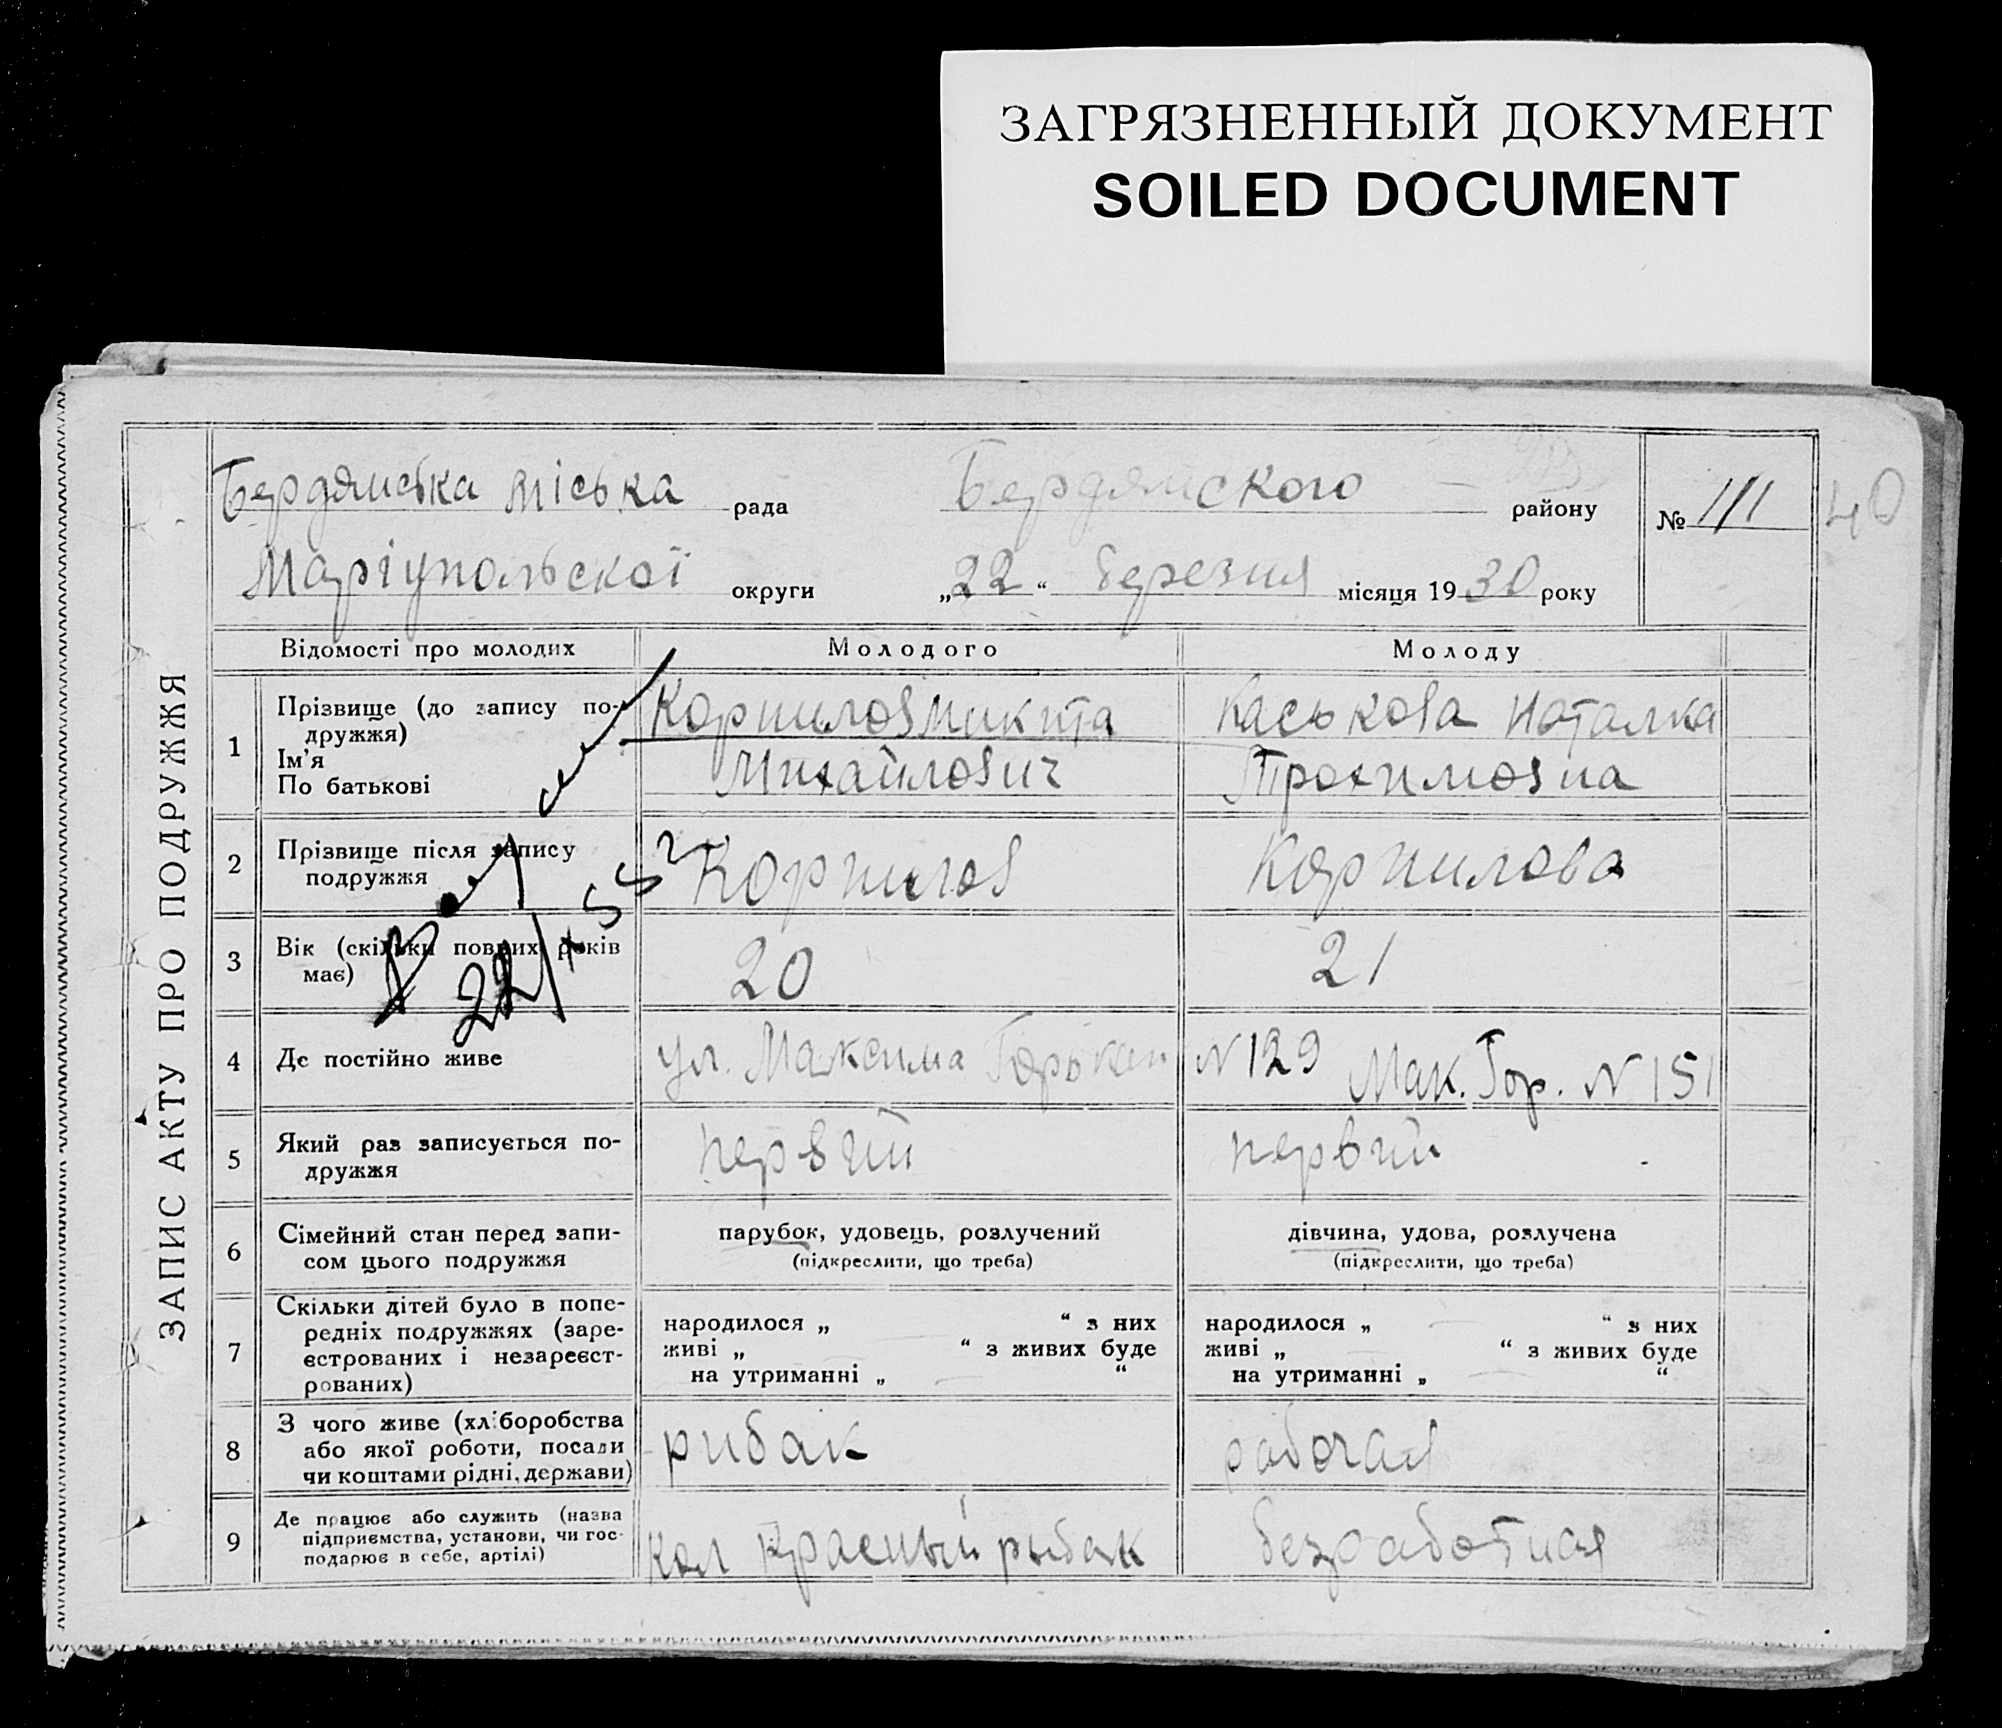 ЗАГРЯЗНЕННЫЙ ДОКУМЕНТ
SOILED DOCUMENT
ЗАПИС АКТУ ПРО ПОДРУЖЖЯ
Бердянська міська рада Бердянского району № 111 40
Маріупольскої округи „22“ березня місяця 1930 року
Відомості про молодих Молодого Молоду
1 Прізвище (до запису по-
дружжя)
Ім'я
По батькові
Корнилов Микита
Михайлович
Каськова Наталка
Трохимовна
2 Прізвище після запису
подружжя
Корнилов
Корнилова
22/X 55 г
3 Вік (скільки повних років
має)
20
21
4 Де постійно живе ул. Максима Горького N 129 Мак. Гор. N 151
5 Який раз записується по-
дружжя
первий
первий
6 Сімейний стан перед запи-
сом цього подружжя
парубок, удовець, розлучений
(підкреслити, що треба)
дівчина, удова, розлучена
(підкреслити, що треба)
7 Скільки дітей було в попе-
редніх подружжях (заре-
єстрованих і незареєст-
рованих)
народилося „ “ з них
живі „ “ з живих буде
на утриманні „ “
народилося „ “ з них
живі „ “ з живих буде
на утриманні „ “
8 З чого живе (хліборобства
або якої роботи, посади
чи коштами рідні, держави)
рибак
рабочая
9 Де працює або служить (назва
підприємства, установи, чи гос-
подарює в себе, артілі)
Кол Красный рыбак
безработная